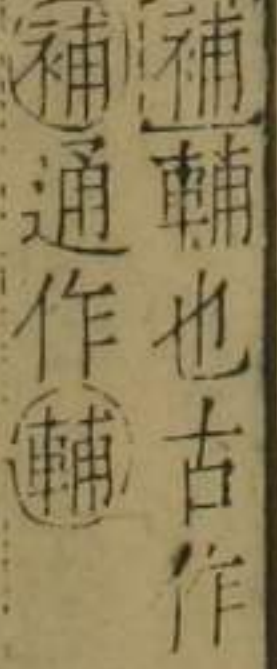 補輔也古作
補通作輔